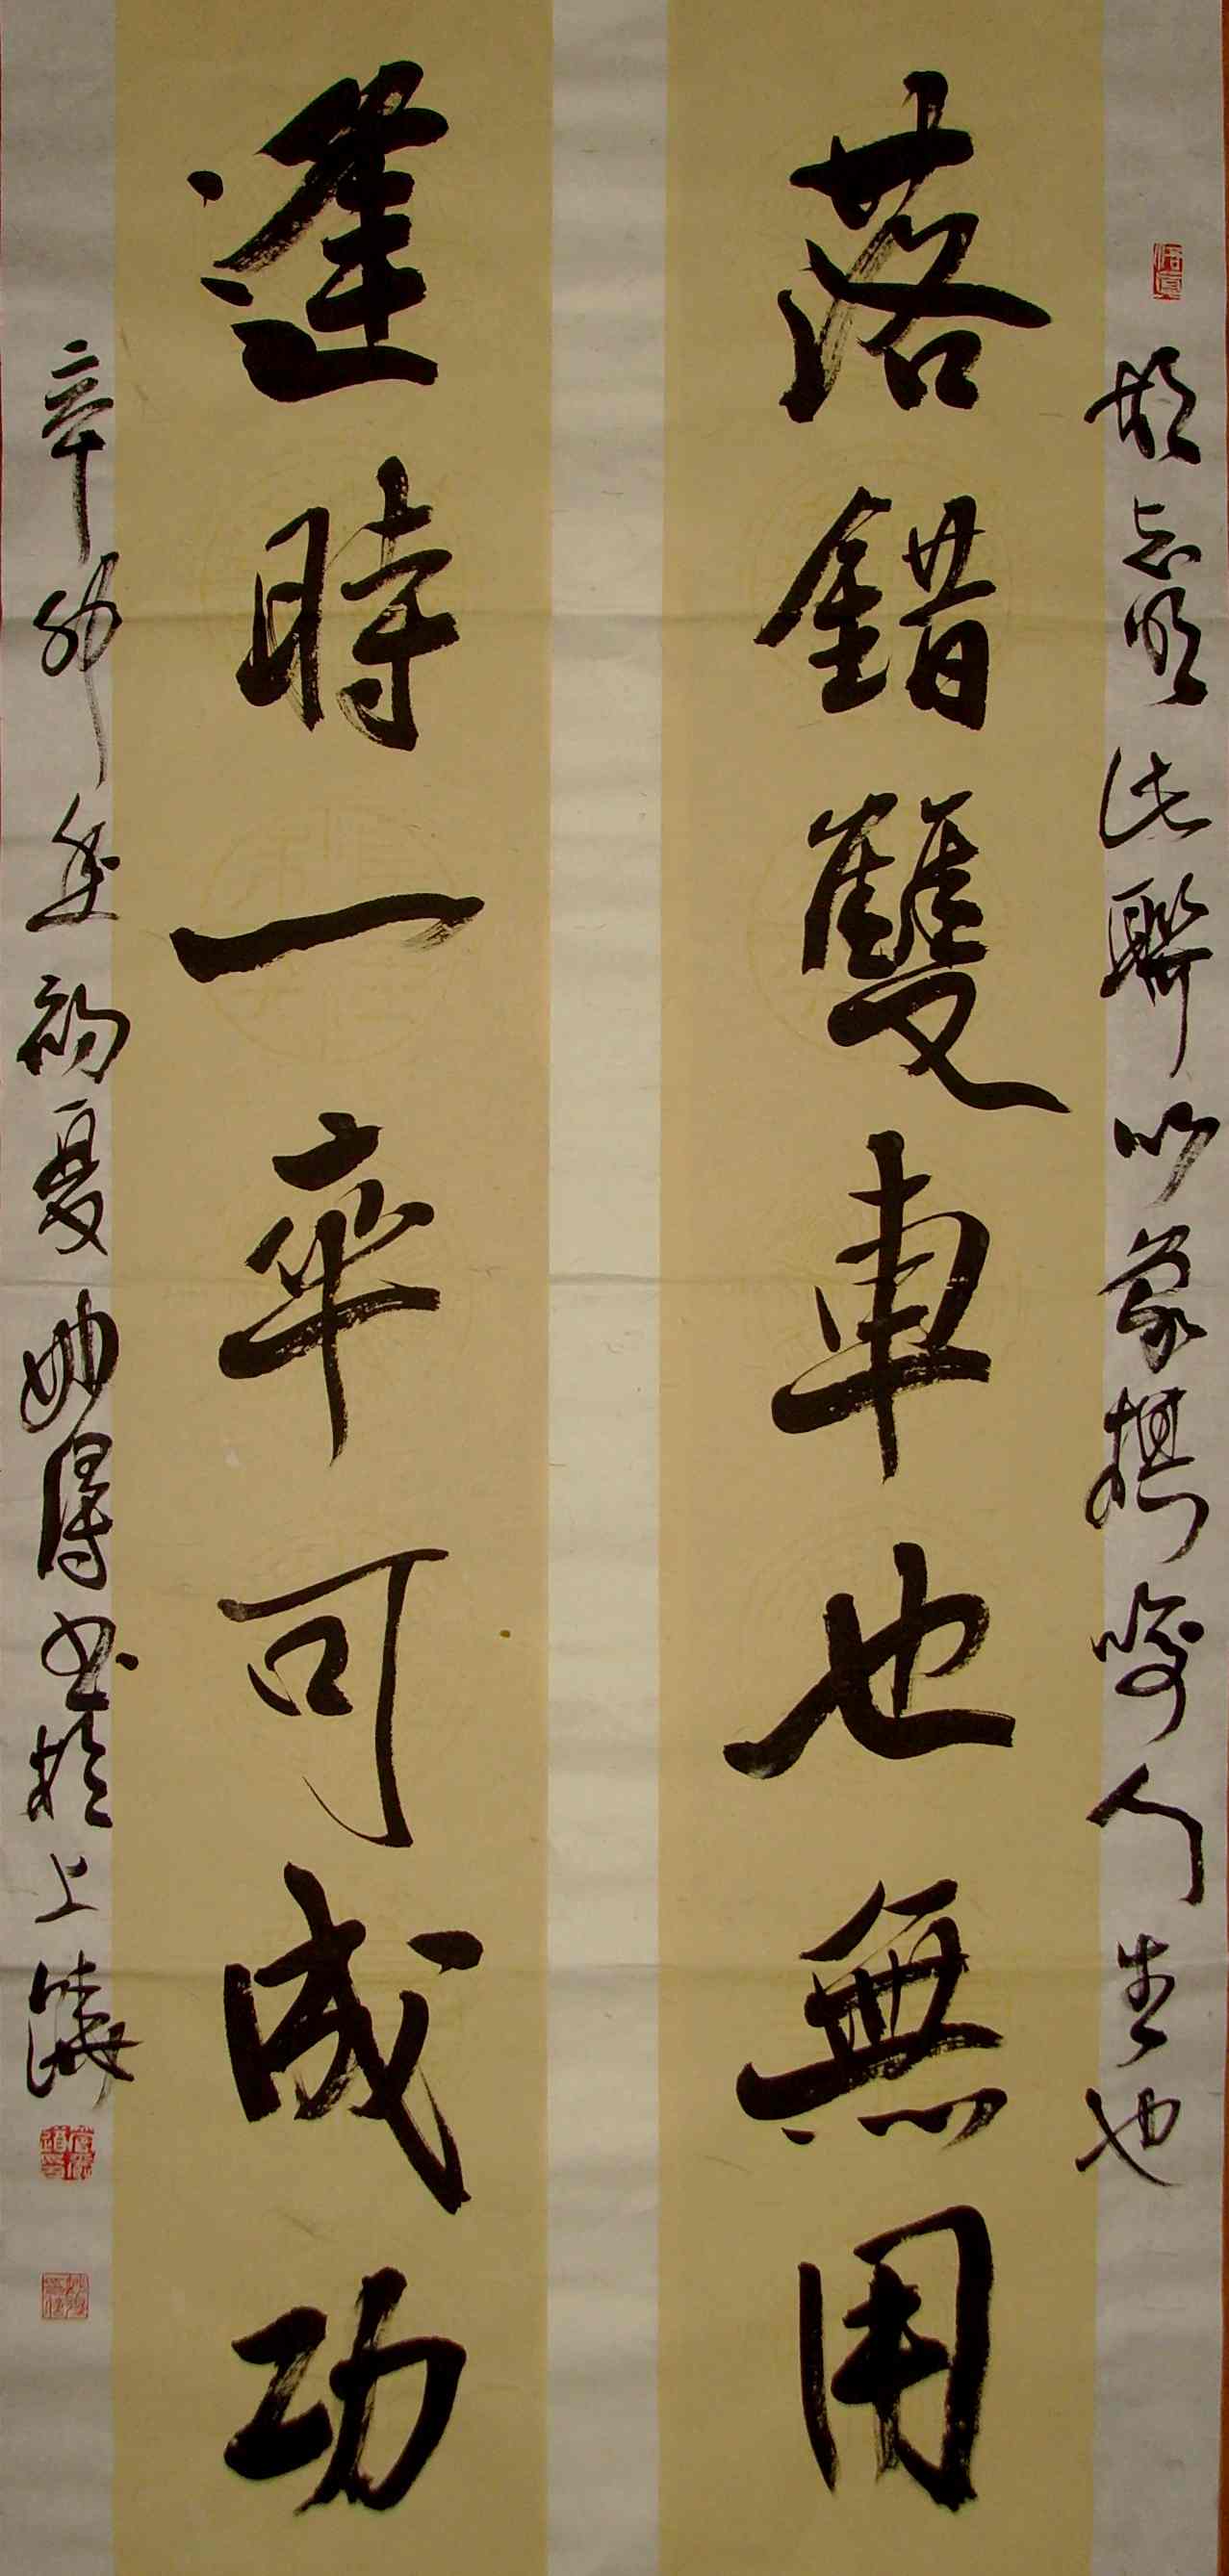 胡志明此聯以象棋喻人生也
落錯雙車也無用
逢時一卒可成功
辛卯年初夏妙得書於上海